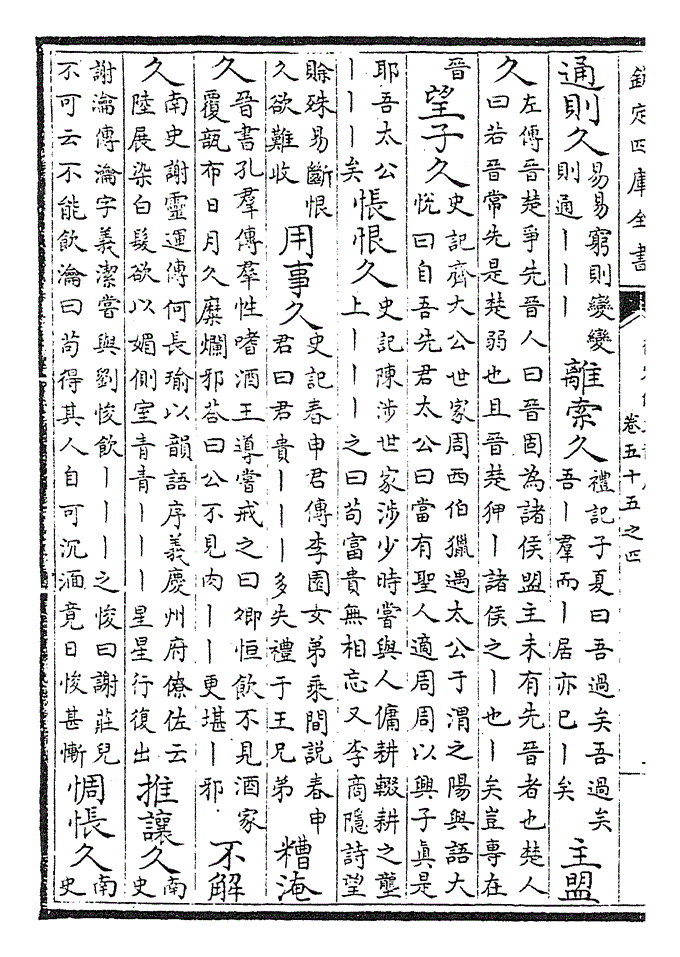 欽定四庫全書
卷五十五之四
通則久
易易窮則變變
則通丨丨丨
離索久
禮記子夏曰吾過矣吾過矣
吾丨羣而丨居亦已丨矣
主盟
久
左傳晉楚爭先晉人曰晉固為諸侯盟主未有先晉者也楚人
曰若晉常先是楚弱也且晉楚狎丨諸侯之丨也丨矣豈專在
晉
望子久
史記齊大公世家周西伯獵遇太公于渭之陽與語大
悅曰自吾先君太公曰當有聖人適周周以興子真是
耶吾太公
丨丨丨矣
悵恨久
史記陳涉世家涉少時嘗與人傭耕輟耕之壟
上丨丨丨之曰苟富貴無相忘又李商隱詩望
賒殊易斷恨
久欲難收
用事久
史記春申君傳李園女弟乘間說春申
君曰君貴丨丨丨多失禮于王兄弟
糟淹
久
晉書孔羣傳羣性嗜酒王導嘗戒之曰卿恒飲不見酒家
覆瓿布日月久糜爛邪荅曰公不見肉丨丨更堪丨邪
不解
久
南史謝靈運傳何長瑜以韻語序義慶州府僚佐云
陸展染白髮欲以媚側室青青丨丨丨星星行復出
推讓久
南
史
謝瀹傳瀹字義潔嘗與劉悛飲丨丨丨之悛曰謝莊兒
不可云不能飲瀹曰苟得其人自可沉湎竟日悛甚慚
惆悵久
南
史